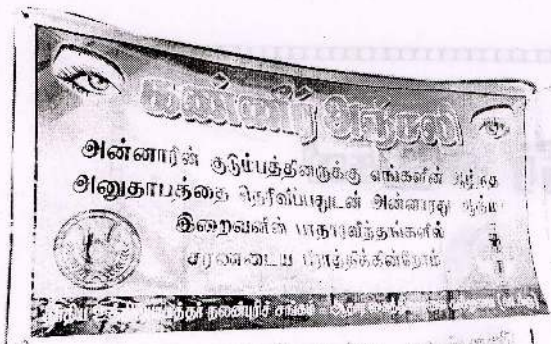 கண்ணீர் அஞ்சலி
அன்னாரின் குடும்பத்தினருக்கு எங்களின் ஆழ்ந்த
அனுதாபத்தை தெரிவிப்பதுடன் அன்னாரது ஆத்மா
இறைவனின் பாதாரவிந்தங்களில்
சரணடைய பிராத்திக்கின்றோம்
நலன்புரிச் சங்கம் - ஆதார